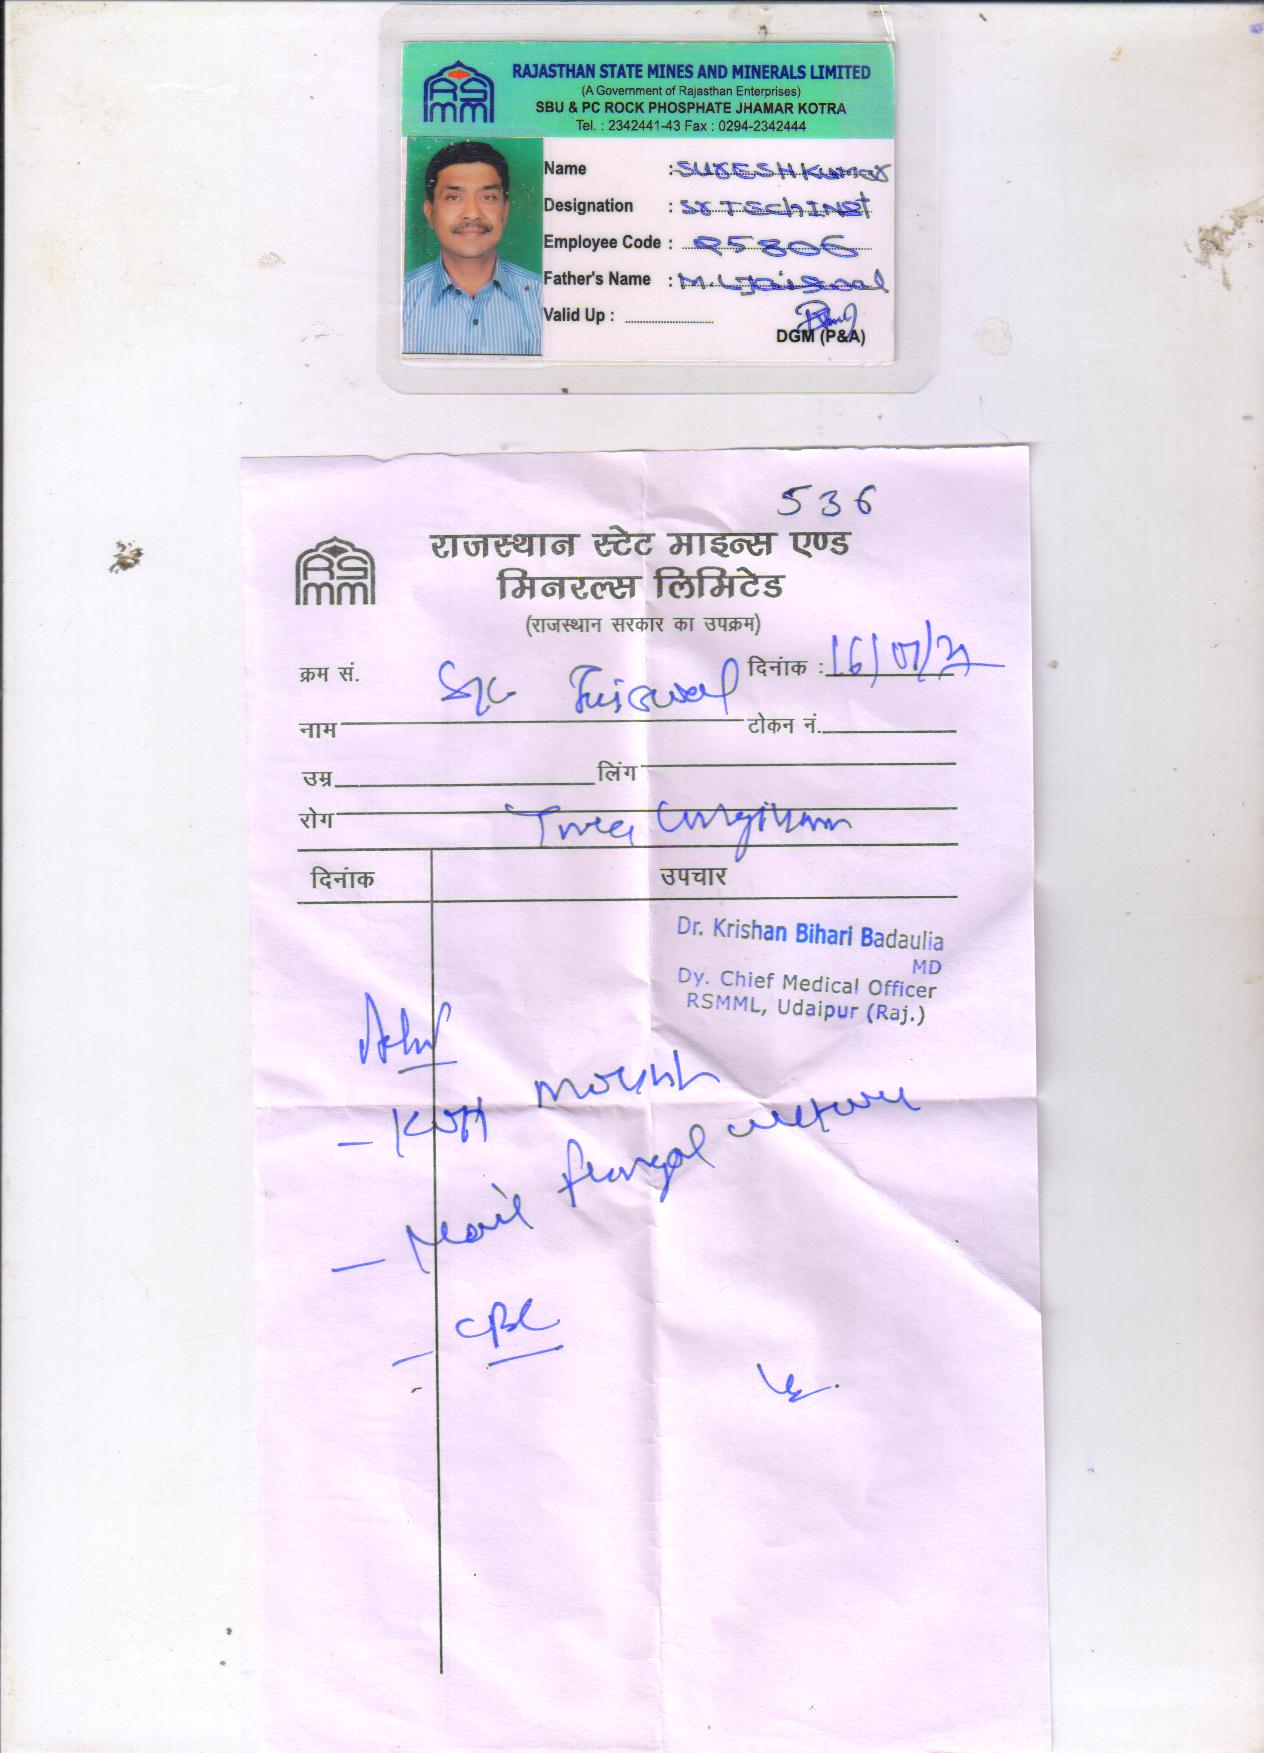 RSMM
RAJASTHAN STATE MINES AND MINERALS LIMITED
(A Government of Rajasthan Enterprises)
SBU & PC ROCK PHOSPHATE JHAMAR KOTRA
Tel. : 2342441-43 Fax : 0294-2342444
Name : SURESH KUMAR
Designation : Sr Tech Inst
Employee Code : R5806
Father's Name : M.L Jaiswal
Valid Up : ....................
DGM (P&A)
536
RSMM
राजस्थान स्टेट माइन्स एण्ड
मिनरल्स लिमिटेड
(राजस्थान सरकार का उपक्रम)
क्रम सं. दिनांक : 16/07/21
नाम S/C Jaiswal टोकन नं.
उम्र लिंग
रोग Tinea
दिनांक उपचार
Dr. Krishan Bihari Badaulia
MD
Dy. Chief Medical Officer
RSMML, Udaipur (Raj.)
Adv
- KOH mount
- Nail fungal culture
- CBC